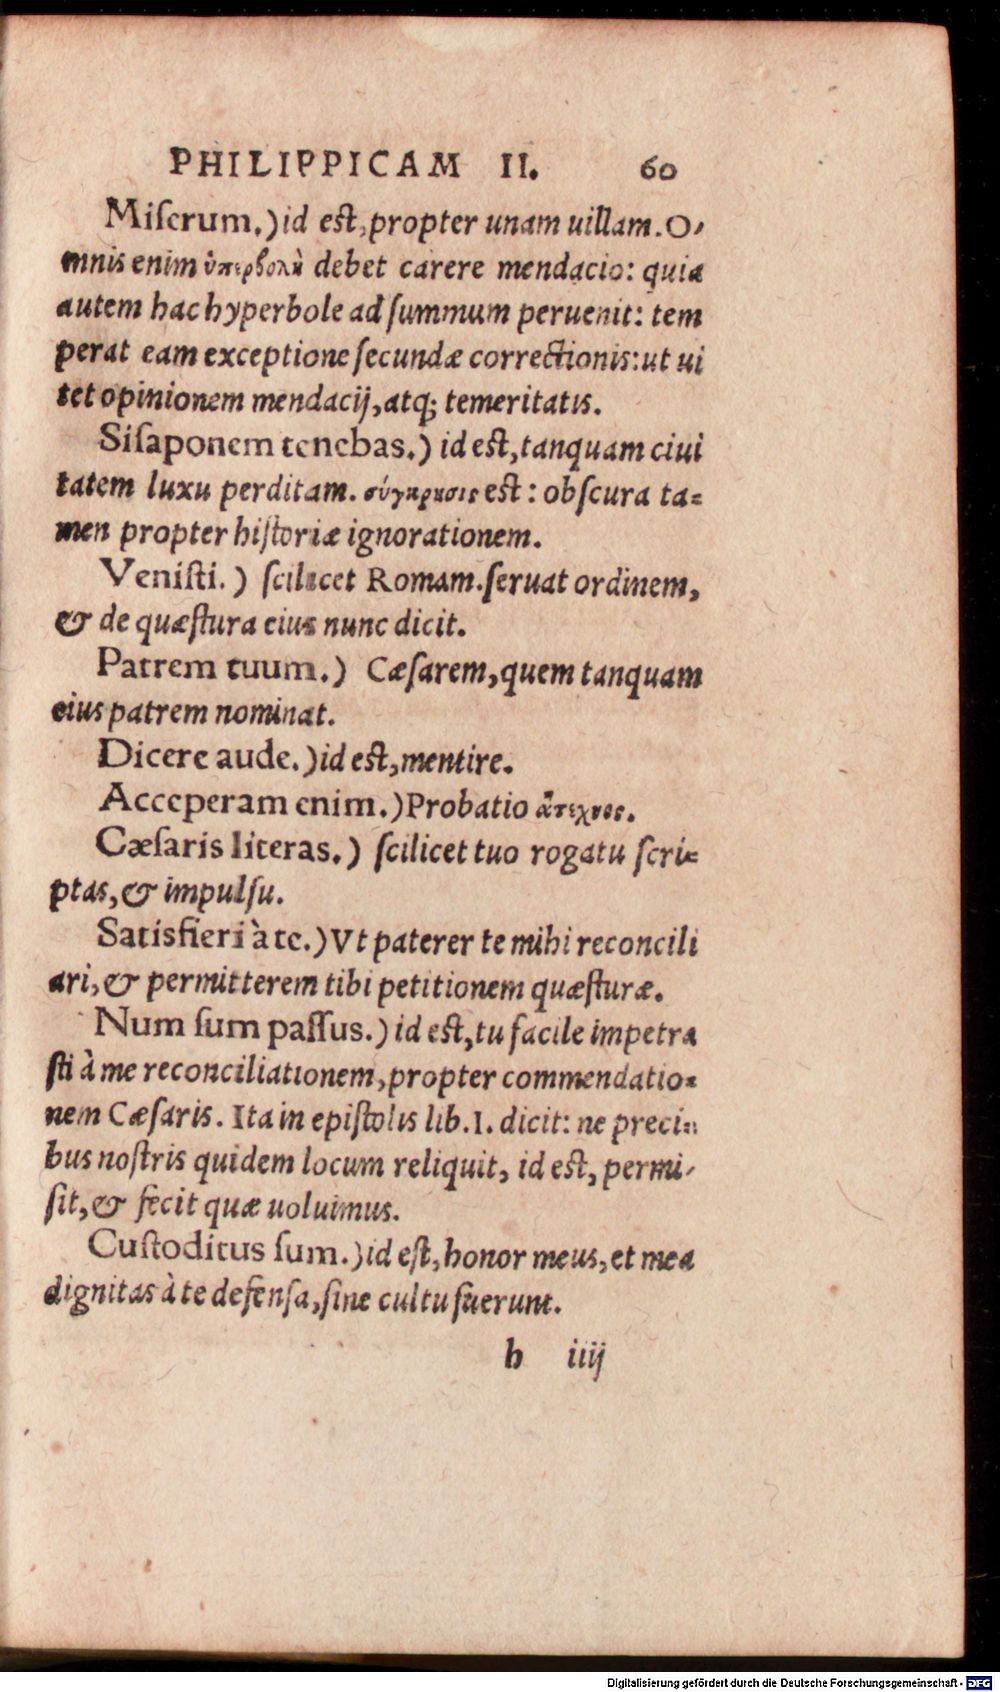 PHILIPPICAM II. 60
Miſerum.) id eſt, propter unam uillam. O-
mnis enim ὑπερβολὴ debet carere mendacio: quia
autem hac hyperbole ad ſummum peruenit: tem
perat eam exceptione ſecundæ correctionis: ut ui
tet opinionem mendacij, atq; temeritatis.
Siſaponem tenebas.) id eſt, tanquam ciui
tatem luxu perditam. σύγκρισις eſt: obſcura ta=
men propter hiſtoriæ ignorationem.
Veniſti.) ſcilicet Romam. ſeruat ordinem,
& de quæſtura eius nunc dicit.
Patrem tuum.) Cæſarem, quem tanquam
eius patrem nominat.
Dicere aude.) id eſt, mentire.
Acceperam enim.) Probatio ἄτεχνος.
Cæſaris literas.) ſcilicet tuo rogatu ſcri=
ptas, & impulſu.
Satisfieri à te.) Vt paterer te mihi reconcili
ari, & permitterem tibi petitionem quæſturæ.
Num ſum paſſus.) id eſt, tu facile impetra
ſti à me reconciliationem, propter commendatio=
nem Cæſaris. Ita in epiſtolis lib. I. dicit: ne preci=
bus noſtris quidem locum reliquit, id eſt, permi-
ſit, & fecit quæ uoluimus.
Cuſtoditus ſum.) id eſt, honor meus, et mea
dignitas à te defenſa, ſine cultu fuerunt.
h iiij
Digitalisierung gefördert durch die Deutsche Forschungsgemeinschaft - DFG